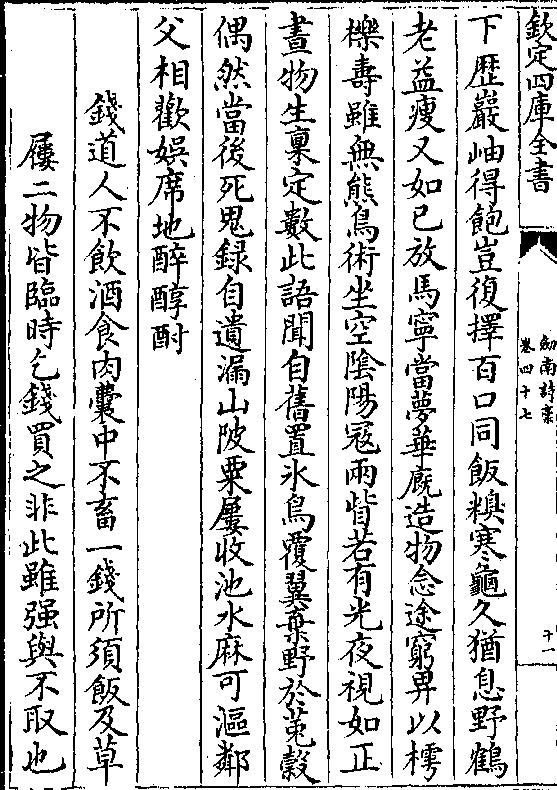 欽定四庫全書
劒南詩稾
卷四十七
十一
下歴巖岫得飽豈復擇百口同飯糗寒龜久猶息野鶴
老益瘦又如已放馬寧當夢華廐造物念途窮畀以樗
櫟壽雖無熊鳥術坐空陰陽冦兩眥若有光夜視如正
晝物生稟定數此語聞自舊置氷鳥覆翼棄野於菟糓
偶然當後死鬼録自遺漏山陂粟屢收池水麻可漚鄰
父相歡娯席地醉醇酎
錢道人不飲酒食肉囊中不畜一錢所須飯及草
屨二物皆臨時乞錢買之非此雖强與不取也